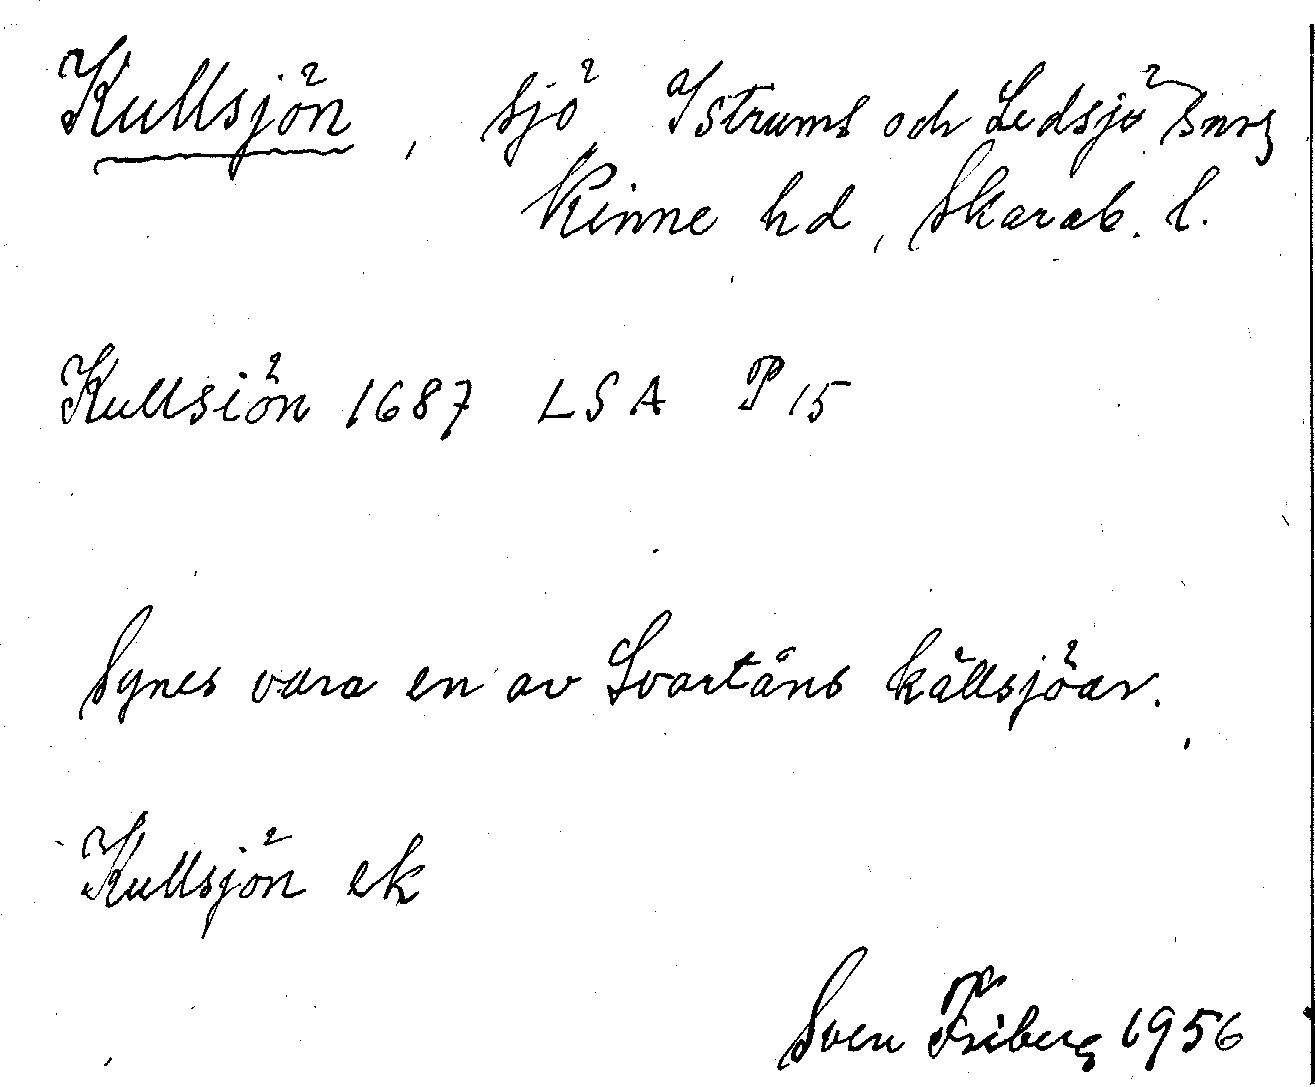 Kullsjön, sjö Istrums och Ledsjö snr
Kinne hd, Skarab. l.
Kullsiön 1687 LSA P 15
Synes vara en av Svartåns källsjöar.
Kullsjön ek
Sven Friberg 1956